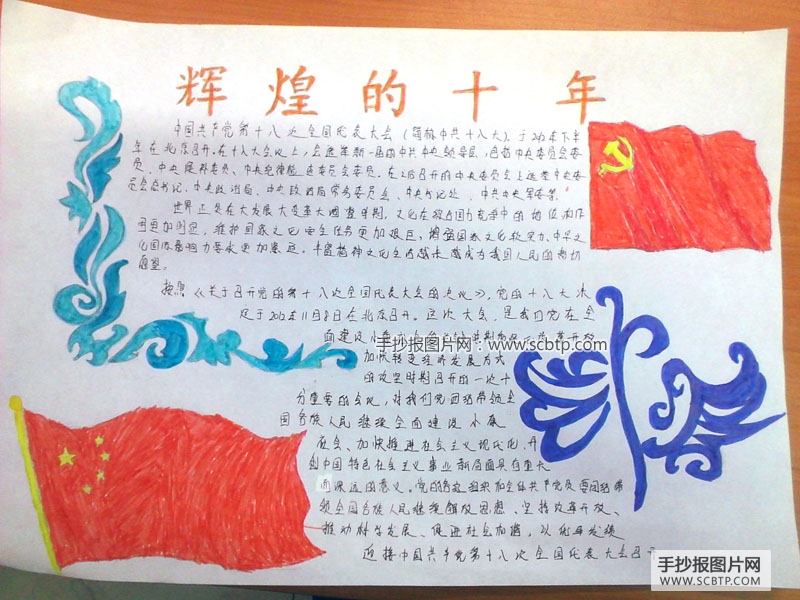 辉煌的十年
中国共产党第十八次全国代表大会（简称中共十八大），于2012年下半
年在北京召开。在十八大会议上，会选举新一届的中共中央领导层，包括中央委员会委
员、中央候补委员、中央纪律检查委员会委员。在之后召开的中央委员会上选举中央委
员会总书记、中央政治局、中央政治局常务委员会、中央书记处、中共中央军委等。
世界正处在大发展大变革大调整时期，文化在综合国力竞争中的地位和作
用更加明显，维护国家文化安全任务更加艰巨，增强国家文化软实力、中华文
化国际影响力要求更加紧迫。丰富精神文化生活越来越成为我国人民的热切
愿望。
按照《关于召开党的第十八次全国代表大会的决议》，党的十八大决
定于2012年11月8日在北京召开。这次大会，是我们党在全
面建设小康社会
手抄报图片网：www.scbtp.com
加快转变经济发展方式
的攻坚时期召开的一次十
分重要的会议，对我们党团结带领全
国各族人民继续全面建设小康
社会、加快推进社会主义现代化、开
创中国特色社会主义事业新局面具有重大
而深远的意义。党的各级组织和全体共产党员要团结带
领全国各族人民继续解放思想、坚持改革开放、
推动科学发展、促进社会和谐，以优异成绩
迎接中国共产党第十八次全国代表大会召开
手抄报图片网
WWW.SCBTP.COM